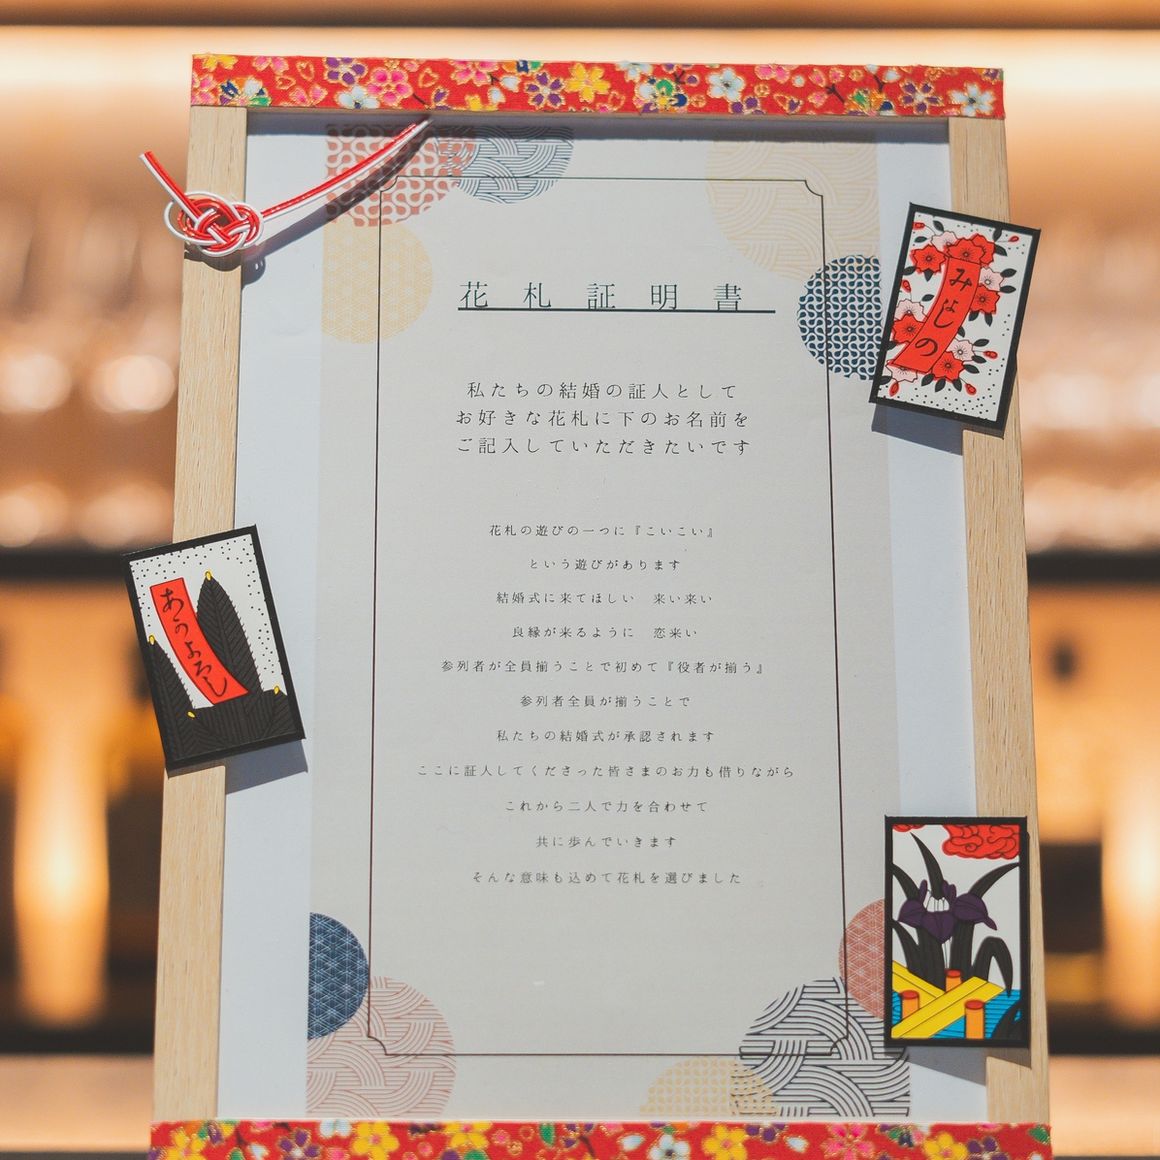 花札証明書
私たちの結婚の証人として
お好きな花札に下のお名前を
ご記入していただきたいです
花札の遊びの一つに『こいこい』
という遊びがあります
結婚式に来てほしい　来い来い
良縁が来るように　恋来い
参列者が全員揃うことで初めて『役者が揃う』
参列者全員が揃うことで
私たちの結婚式が承認されます
ここに証人してくださった皆さまのお力も借りながら
これから二人で力を合わせて
共に歩んでいきます
そんな意味も込めて花札を選びました
みよしの
あかよろし